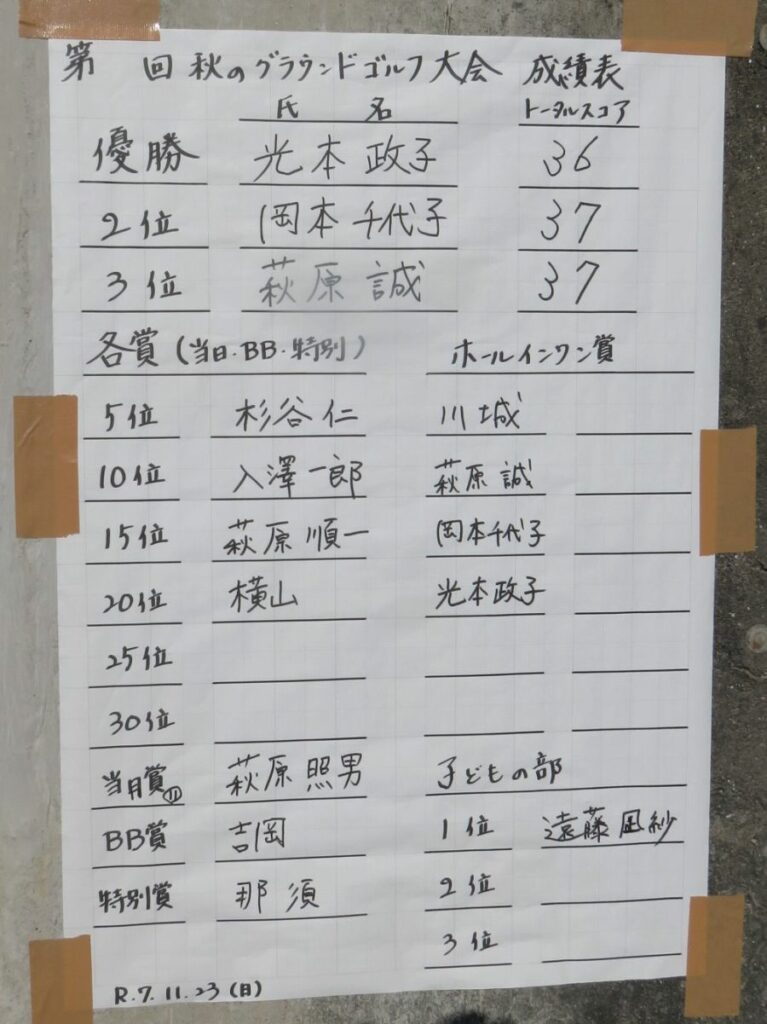 第　回 秋のグラウンドゴルフ大会 成績表
氏 名 トータルスコア
優勝 光本政子 36
2位 岡本千代子 37
3位 萩原誠 37
各賞(当日・BB・特別) ホールインワン賞
5位 杉谷仁 川城
10位 入澤一郎 萩原誠
15位 萩原順一 岡本千代子
20位 横山 光本政子
25位
30位
当月賞⑪ 萩原照男 子どもの部
BB賞 吉岡 1位 遠藤凪紗
特別賞 那須 2位
3位
R.7.11.23(日)